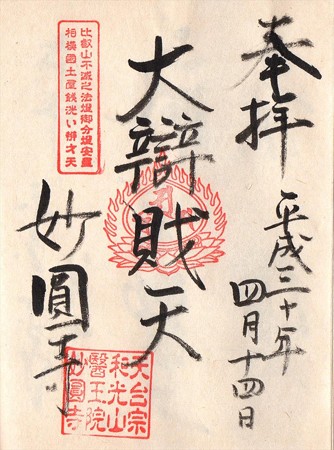 奉拝
平成三十年
四月十四日
大辯財天
妙圓寺
比叡山不滅之法燈御分燈安置
相模國土屋銭洗い辨才天
天台宗
和光山
醫王院
妙圓寺